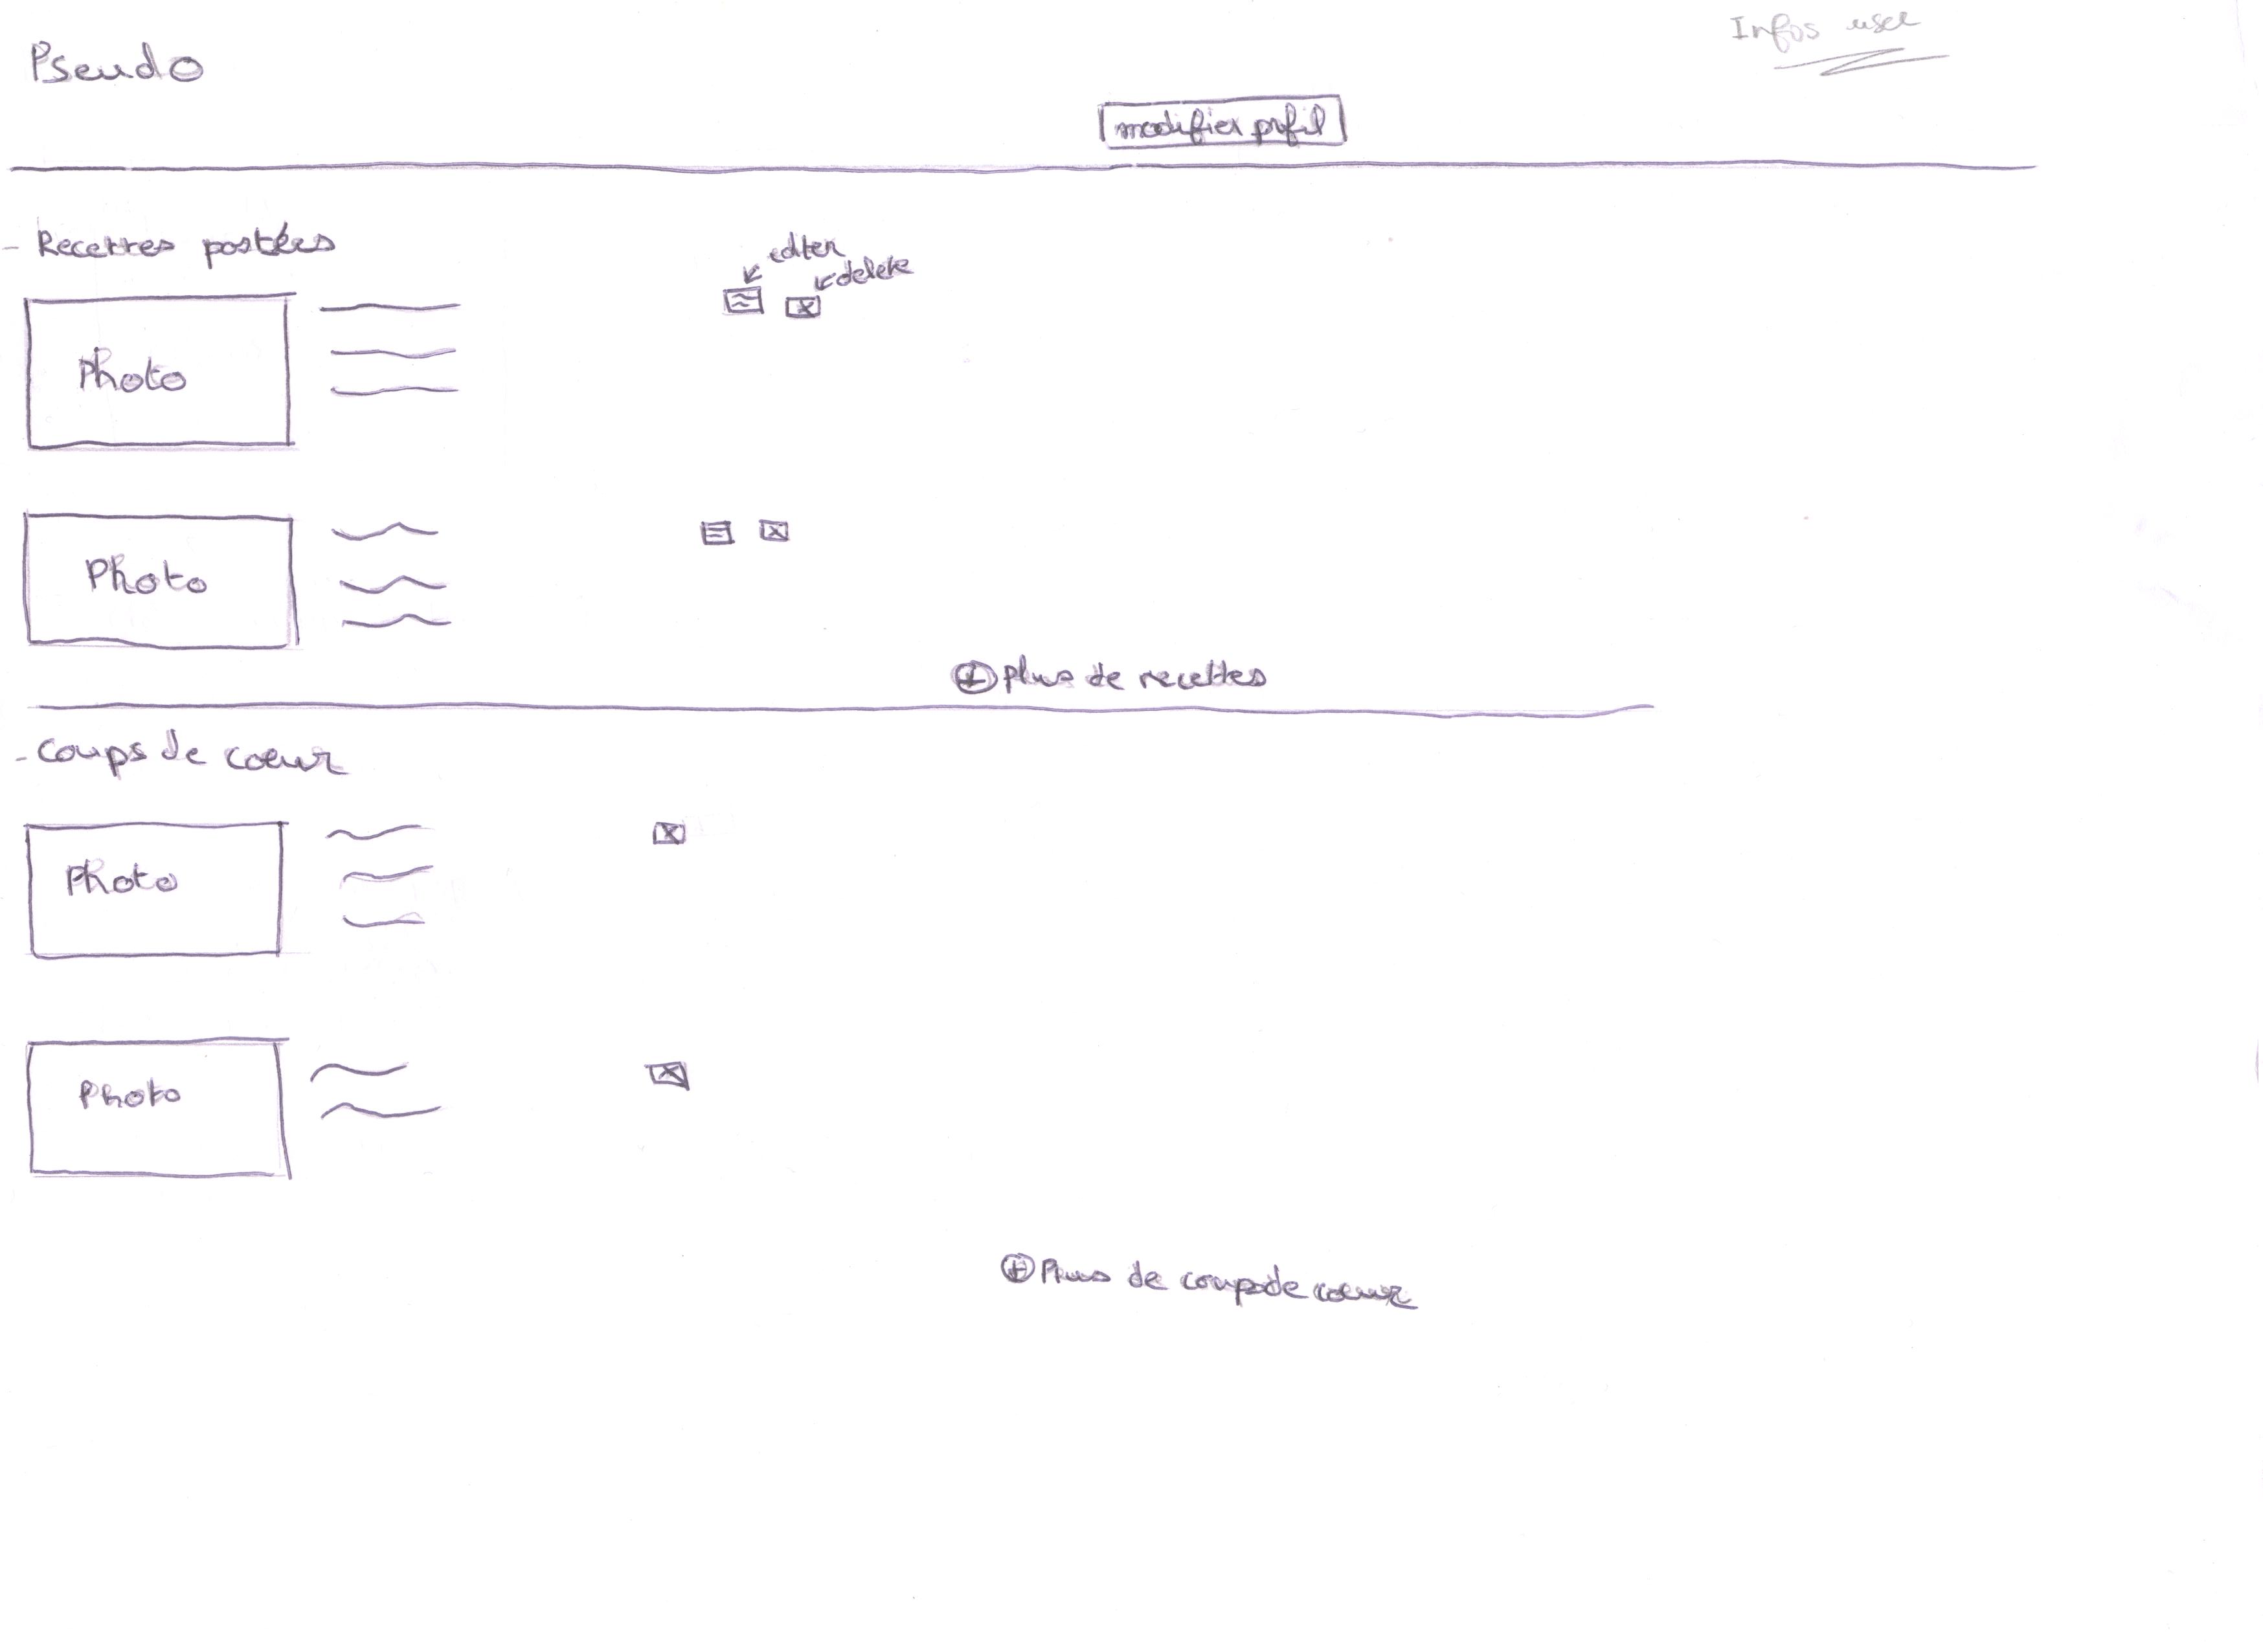 Infos user
Pseudo
modifier profil
- Recettes postées
editer
delete
Photo
Photo
+ plus de recettes
- Coups de coeur
Photo
Photo
+ Plus de coups de coeur